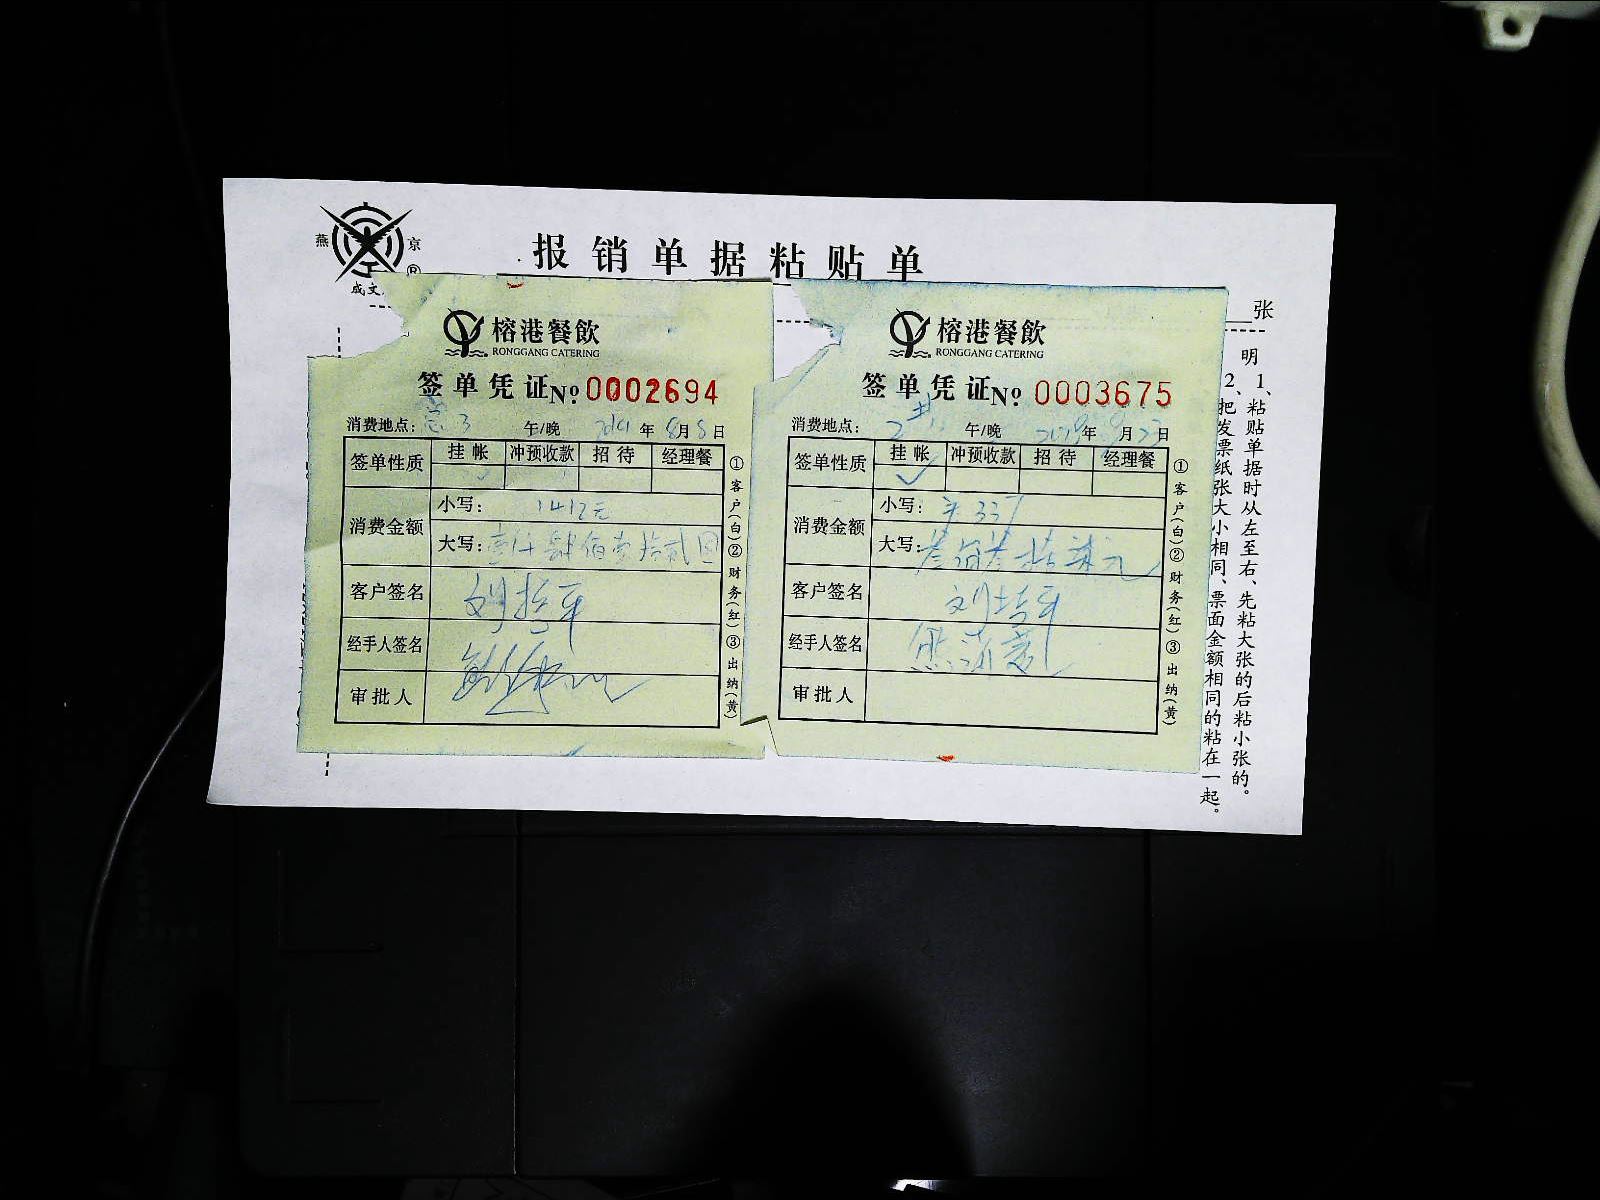 报销单据粘贴单
燕 京
®
成文
张
榕港餐飲
RONGGANG CATERING
签单凭证 No 0002694
消费地点： 3 午/晚 年 8月8日
签单性质 挂帐 冲预收款 招待 经理餐
消费金额 小写： 1412元
大写：壹仟肆佰壹拾贰圆
客户签名
经手人签名
审批人
①客户（白）②财务（红）③出纳（黄）
榕港餐飲
RONGGANG CATERING
签单凭证 No 0003675
消费地点： 午/晚 年 月 日
签单性质 挂帐 冲预收款 招待 经理餐
消费金额 小写： 337
大写：叁佰叁拾柒元
客户签名
经手人签名
审批人
①客户（白）②财务（红）③出纳（黄）
明
1、粘贴单据时从左至右、先粘大张的后粘小张的。
2、把发票纸张大小相同、票面金额相同的粘在一起。